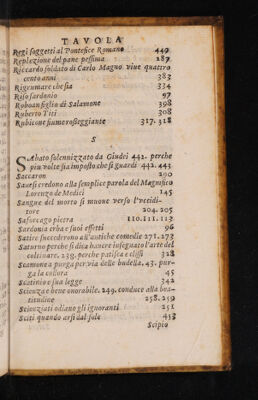 TAVOLA
Regi soggetti al Pontefice Romano 449
Replezione del pane pessima 287
Riccardo soldato di Carlo Magno viue quattro
cento anni 383
Rigrumare che sia 334
Riso sardonio 97
Roboan figlio di Salamone 398
Ruberto Titi 308
Rubicone fiume rosseggiante 317. 318
S
SAbato solennizzato da Giudei 442. perche
piu volte sia imposto che si guardi 442. 443
Saccaron 290
Sauesi credono alla semplice parola del Magnifico
Lorenzo de Medici 145
Sangue del morto si muoue verso l'vccidi-
tore 204. 205
Saforcago pietra 110. 111. 113
Sardonia erba e suoi effetti 96
Satire succederono all'antiche comedie 271. 273
Saturno perche si dica hauere insegnato l'arte del
coltiuare. 238. perche patisca eclissi 328
Scamonea purga per via delle budella. 43. pur-
ga la collora 45
Scatinio e sua legge 342
Scienza e bene onorabile. 249. conduce alla bea-
titudine 258. 259
Scienziati odiano gli ignoranti 251
Sciti quando arsi dal sole 453
Scipio